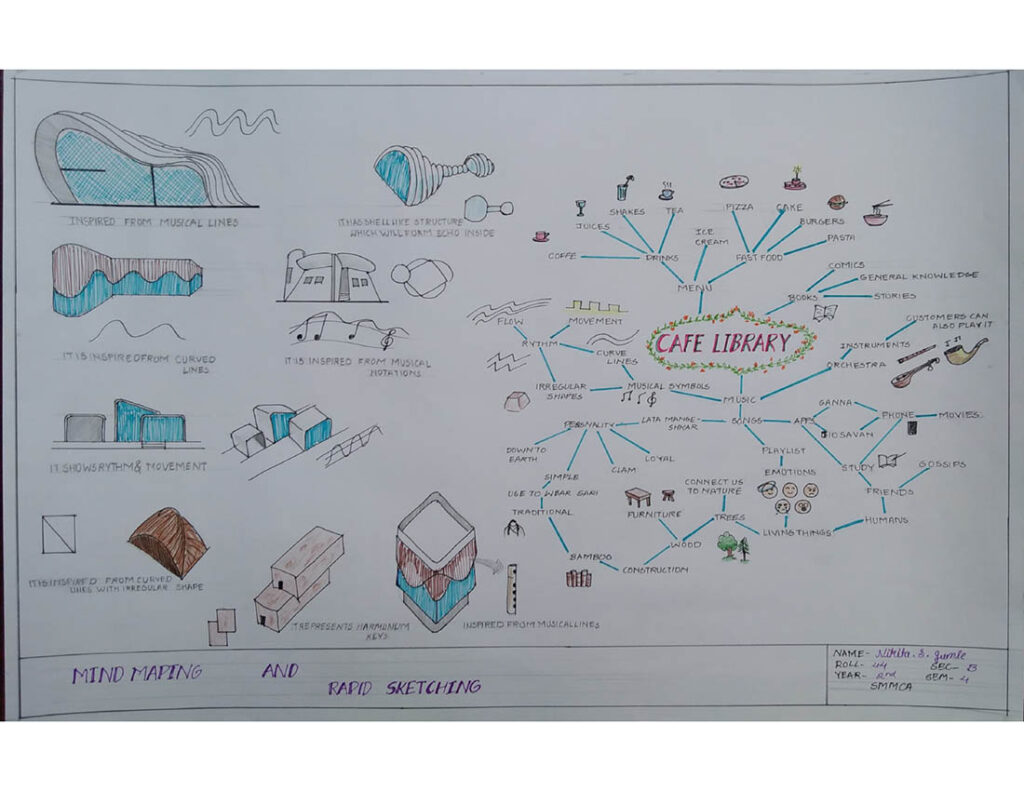 INSPIRED FROM MUSICAL LINES
IT HAS SHELL LIKE STRUCTURE
WHICH WILL FORM ECHO INSIDE
IT IS INSPIRED FROM CURVED
LINES
IT IS INSPIRED FROM MUSICAL
NOTATIONS
IT SHOWS RYTHM & MOVEMENT
IT IS INSPIRED FROM CURVED
LINES WITH IRREGULAR SHAPE
REPRESENTS HARMONIUM
KEYS
INSPIRED FROM MUSICAL LINES
CAFE LIBRARY
MENU
DRINKS
COFFE
JUICES
SHAKES
TEA
ICE
CREAM
FAST FOOD
PIZZA
CAKE
BURGERS
PASTA
BOOKS
COMICS
GENERAL KNOWLEDGE
STORIES
MUSIC
ORCHESTRA
INSTRUMENTS
CUSTOMERS CAN
ALSO PLAY IT
MUSICAL SYMBOLS
IRREGULAR
SHAPES
RYTHM
FLOW
MOVEMENT
CURVE
LINES
SONGS
LATA MANGE-
SHKAR
PERSONALITY
DOWN TO
EARTH
SIMPLE
CLAM
LOYAL
USE TO WEAR SARI
TRADITIONAL
BAMBOO
CONSTRUCTION
WOOD
FURNITURE
TREES
CONNECT US
TO NATURE
LIVING THINGS
EMOTIONS
PLAYLIST
APPS
GANNA
JIO SAVAN
PHONE
MOVIES
STUDY
FRIENDS
GOSSIPS
HUMANS
MIND MAPING AND
RAPID SKETCHING
NAME- Nikita. S.
ROLL- 44 SEC- B
YEAR- 2nd SEM- 4
SMMCA